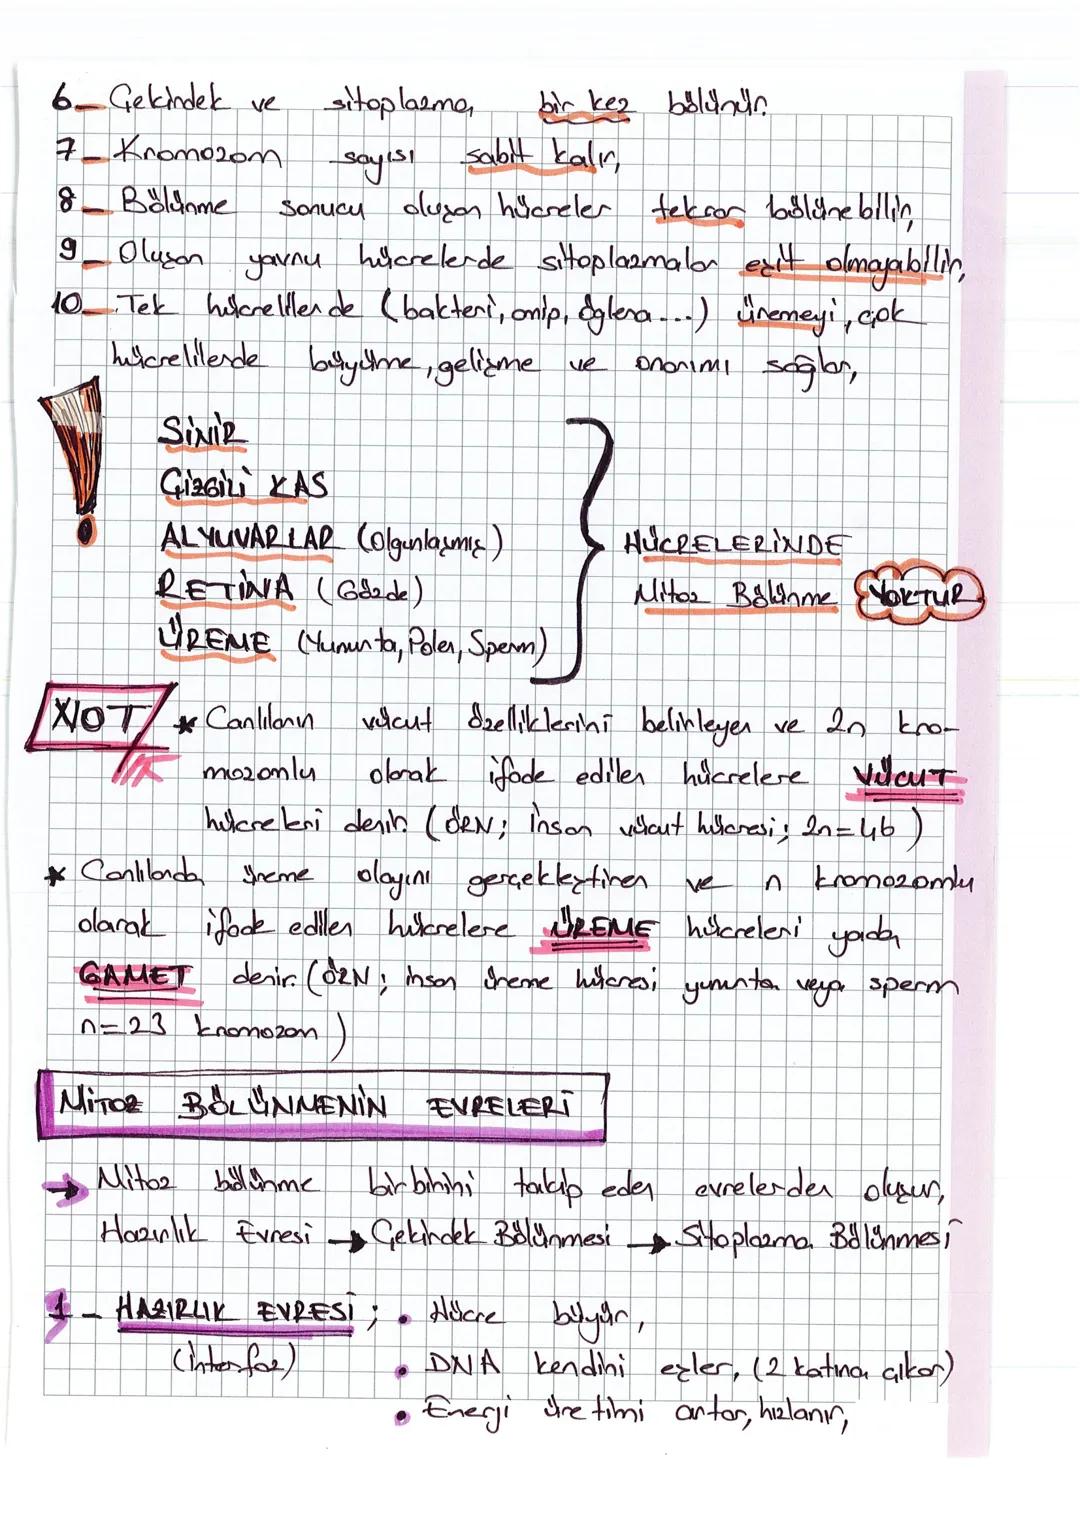 6_ Çekirdek ve sitoplazma, bir kez bölünür.
7_ Kromozom sayısı sabit kalır,
8_ Bölünme sonucu oluşan hücreler tekrar bölünebilir,
9_ Oluşan yavru hücrelerde sitoplazmalar eşit olmayabilir,
10_ Tek hücrelilerde (bakteri, amip, öglena...) üremeyi, çok
hücrelilerde büyüme, gelişme ve onarımı sağlar,
SİNİR
ÇİZGİLİ KAS
ALYUVARLAR (Olgunlaşmış)
RETİNA (Gözde)
ÜREME (Yumurta, Polen, Sperm)
HÜCRELERİNDE
Mitoz Bölünme YOKTUR
NOT * Canlıların vücut özelliklerini belirleyen ve 2n kro-
mozomlu olarak ifade edilen hücrelere VÜCUT
hücreleri denir. (ÖRN; İnsan vücut hücresi; 2n=46)
* Canlılarda üreme olayını gerçekleştiren ve n kromozomlu
olarak ifade edilen hücrelere ÜREME hücreleri yada
GAMET denir. (ÖRN; insan üreme hücresi yumurta veya sperm
n=23 kromozom)
MİTOZ BÖLÜNMENİN EVRELERİ
→ Mitoz bölünme birbirini takip eden evrelerden oluşur,
Hazırlık Evresi → Çekirdek Bölünmesi → Sitoplazma Bölünmesi
1 - HAZIRLIK EVRESİ ; • Hücre büyür,
(interfaz) • DNA kendini eşler, (2 katına çıkar)
• Enerji üretimi artar, hızlanır,